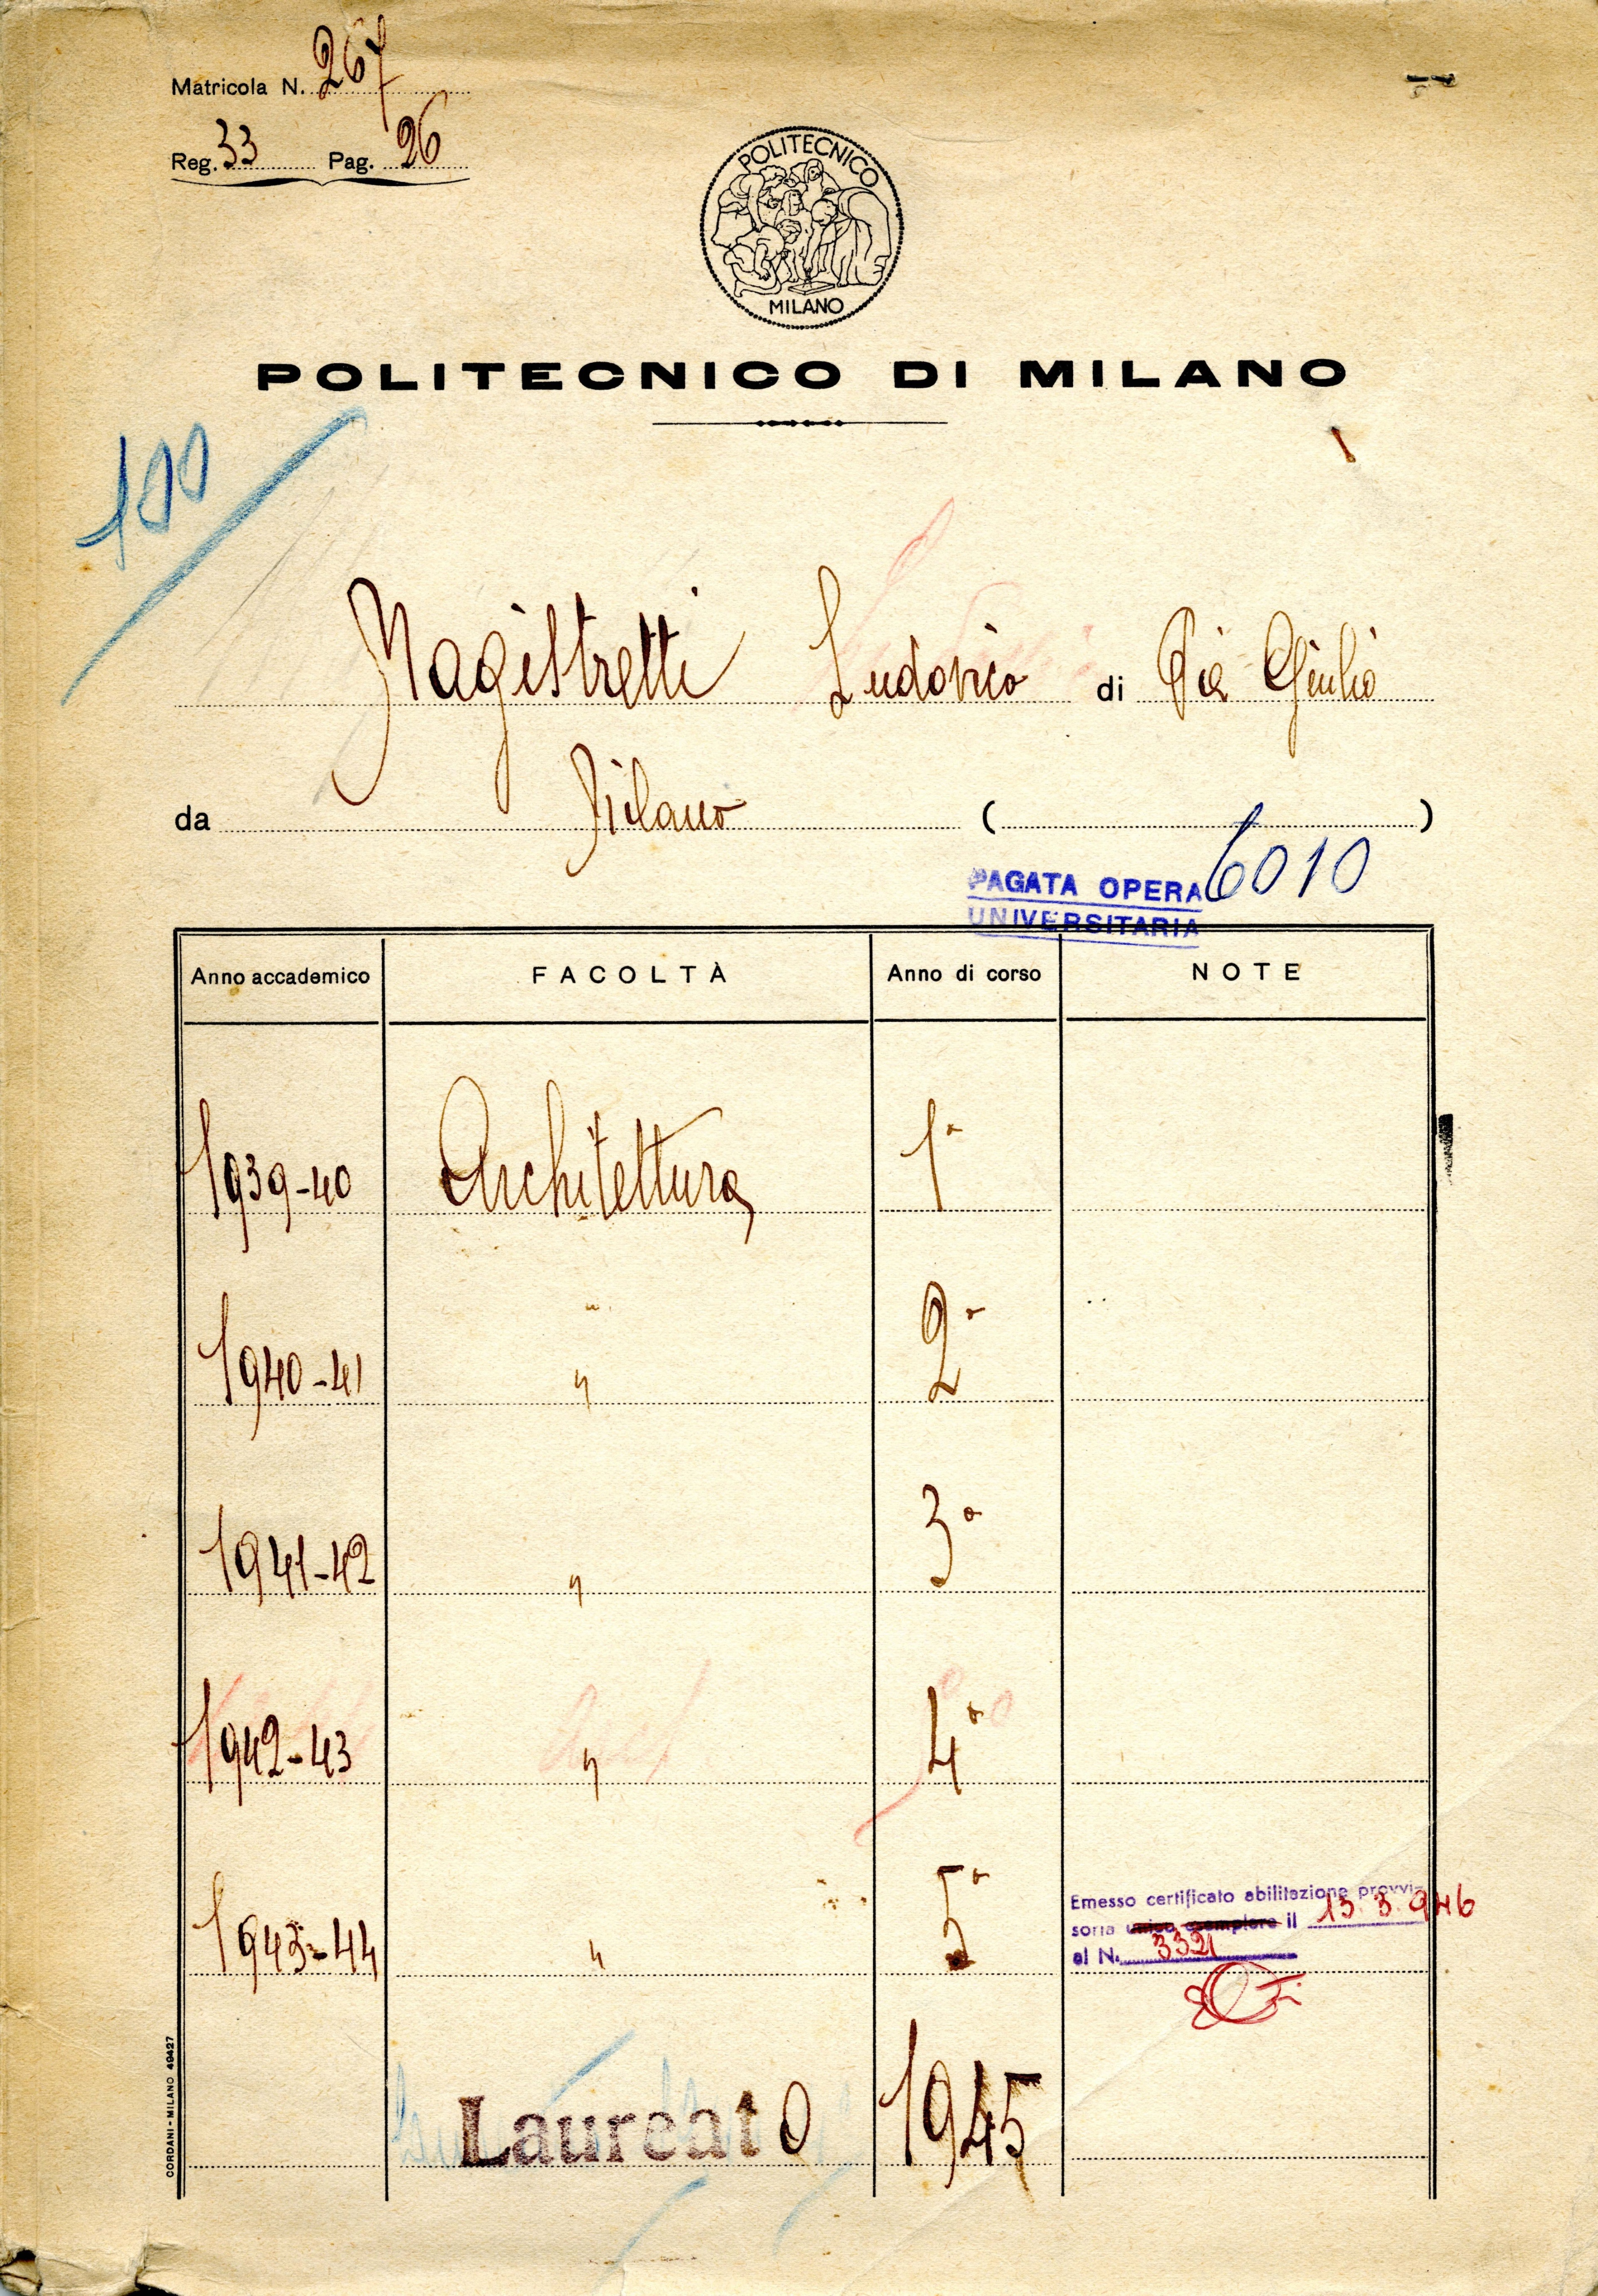 Matricola N. 267
Reg. 33 Pag. 26
POLITECNICO
MILANO
POLITECNICO DI MILANO
100
Magistretti Ludovico di Pier Giulio
da Milano ( )
6010
PAGATA OPERA
UNIVERSITARIA
Anno accademico FACOLTÀ Anno di corso NOTE
1939-40 Architettura 1°
1940-41 " 2°
1941-42 " 3°
1942-43 " 4°
1943-44 " 5°
Emesso certificato abilitazione provvi-
soria unico esemplare il 13.3.946
al N. 3321
Laureato 1945
CORDANI - MILANO 49427